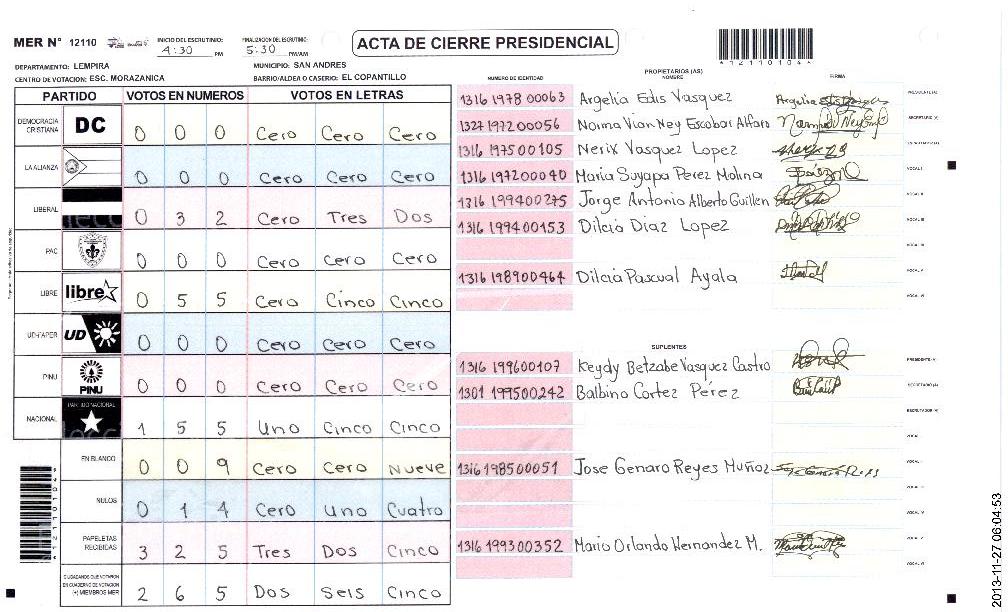 MER N° 12110
INICIO DEL ESCRUTINIO: 4:30 PM
FINALIZACION DEL ESCRUTINIO: 5:30 PM/AM
ACTA DE CIERRE PRESIDENCIAL
DEPARTAMENTO: LEMPIRA
MUNICIPIO: SAN ANDRES
CENTRO DE VOTACION: ESC. MORAZANICA
BARRIO/ALDEA O CASERIO: EL COPANTILLO
PARTIDO VOTOS EN NUMEROS VOTOS EN LETRAS
DEMOCRACIA CRISTIANA DC 0 0 0 Cero Cero Cero
LA ALIANZA 0 0 0 Cero Cero Cero
LIBERAL 0 3 2 Cero Tres Dos
PAC 0 0 0 Cero Cero Cero
LIBRE libre 0 5 5 Cero Cinco Cinco
UD-FAPER UD 0 0 0 Cero Cero Cero
PINU PINU 0 0 0 Cero Cero Cero
NACIONAL PARTIDO NACIONAL 1 5 5 Uno Cinco Cinco
EN BLANCO 0 0 9 Cero Cero Nueve
NULOS 0 1 4 Cero Uno Cuatro
PAPELETAS RECIBIDAS 3 2 5 Tres Dos Cinco
CIUDADANOS QUE VOTARON EN CUADERNO DE VOTACION (+) MIEMBROS MER 2 6 5 Dos Seis Cinco
NUMERO DE IDENTIDAD
PROPIETARIOS (AS)
NOMBRE
FIRMA
1316 1978 00063 Argelia Edis Vasquez
1327 1972 00056 Norma Vian Ney Escobar Alfaro
1316 1975 00105 Nerix Vasquez Lopez
1316 1972 00040 Maria Suyapa Perez Molina
1316 1994 00275 Jorge Antonio Alberto Guillen
1316 1994 00153 Dilcia Diaz Lopez
1316 1989 00464 Dilcia Pascual Ayala
SUPLENTES
1316 1996 00107 Keydy Betzabe Vasquez Castro
1301 1995 00242 Balbino Cortez Pérez
1316 1985 00051 Jose Genaro Reyes Muñoz
1316 1993 00352 Mario Orlando Hernandez M.
2013-11-27 06:04:53